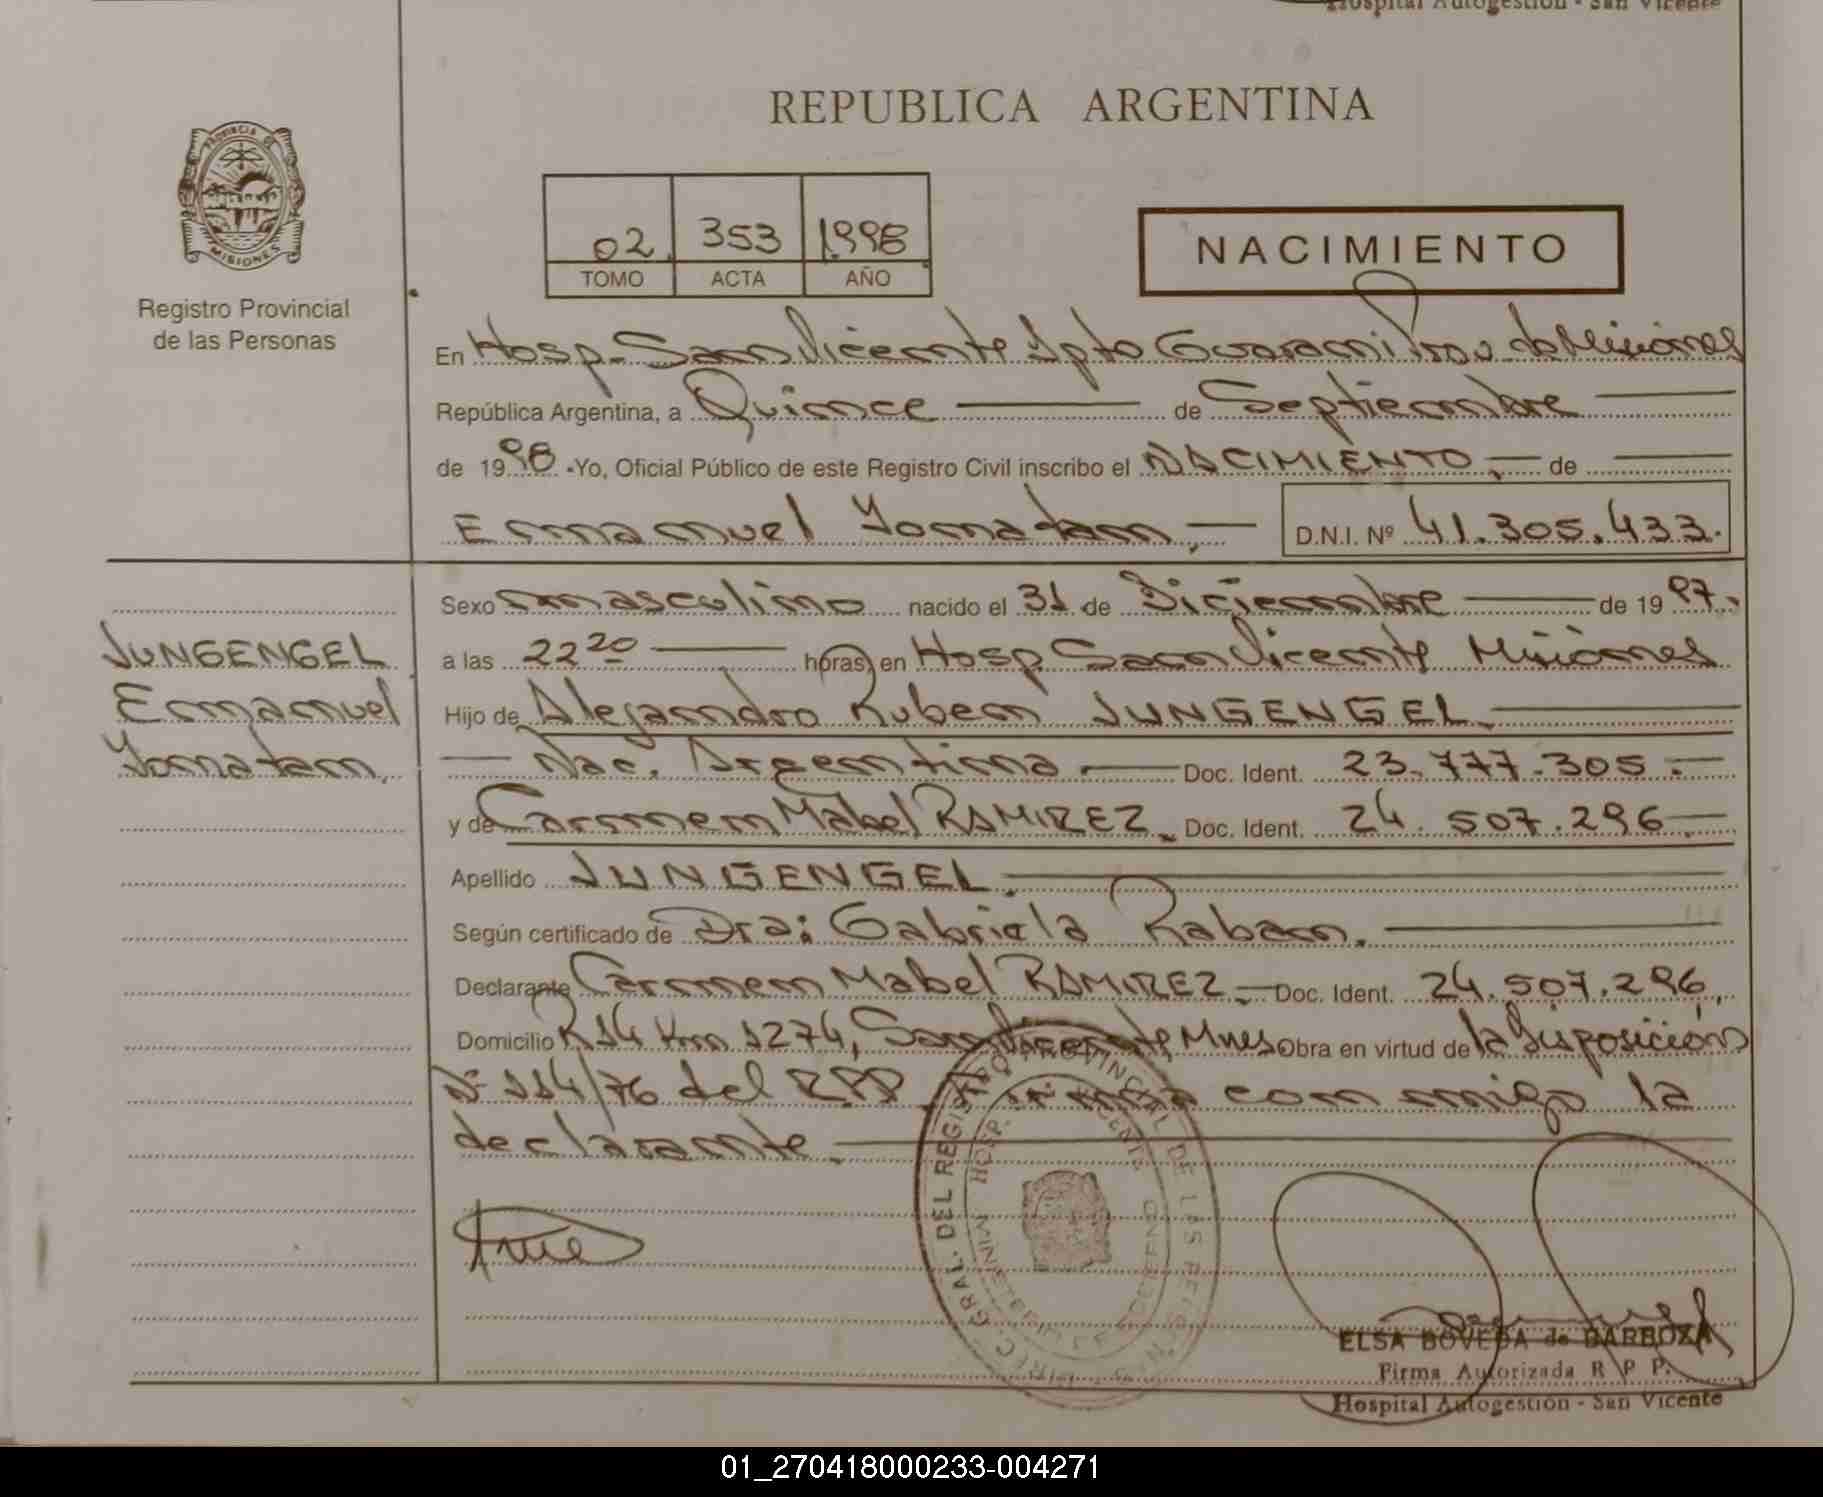 Hospital Autogestión - San Vicente
REPUBLICA ARGENTINA
PROVINCIA DE
MISIONES
Registro Provincial
de las Personas
02 353 1998
TOMO ACTA AÑO
NACIMIENTO
En Hosp. San Vicente Dpto Guarani Prov. de Misiones
República Argentina, a Quince de Septiembre
de 1998 - Yo, Oficial Público de este Registro Civil inscribo el NACIMIENTO, de
Emanuel Yonatan, D.N.I. Nº 41.305.433.
Sexo masculino nacido el 31 de Diciembre de 1997.
JUNGENGEL
Emanuel
Yonatan.
a las 22 20 horas, en Hosp San Vicente Misiones
Hijo de Alejandro Ruben JUNGENGEL
Nac. Argentina Doc. Ident. 23.777.305.
y de Carmen Mabel RAMIREZ. Doc. Ident. 24.507.296.
Apellido JUNGENGEL.
Según certificado de Dra: Gabriela Raban.
Declarante Carmen Mabel RAMIREZ. Doc. Ident. 24.507.296,
Domicilio R14 Km 1274, San Vicente, Mnes Obra en virtud de la Disposición
Nº 114/76 del R.P.P. Firma conmigo la
declarante.
DIREC. GRAL. DEL REGISTRO PROVINCIAL DE LAS PERSONAS
MINISTERIO DE GOBIERNO HOSP. VICENTE
ELSA BOVEDA de BARBOZA
Firma Autorizada R P P.
Hospital Autogestión - San Vicente
01_270418000233-004271